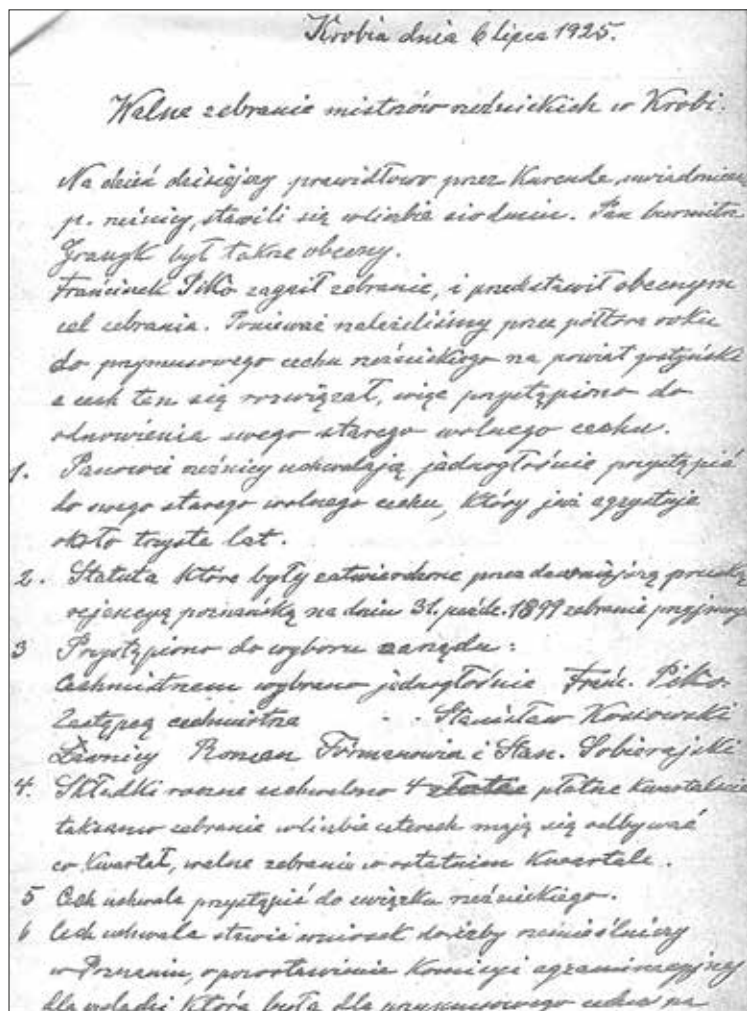 Krobia dnia 6 lipca 1925.
Walne zebranie mistrzów rzeźnickich w Krobi.
Na dzień dzisiejszy prawidłowo przez Kurendę, uwiadomieni
p. rzeźnicy, stawili się w liczbie siedmiu. Pan burmistrz
był także obecny.
Frańciszek zagaił zebranie, i przedstawił obecnym
cel zebrania. Ponieważ należeliśmy przez półtora roku
do przymusowego cechu rzeźnickiego na powiat gostyński
a cech ten się rozwiązał, więc przystąpiono do
odnowienia swego starego wolnego cechu.
1. Panowie rzeźnicy uchwalają jednogłośnie przystąpić
do swego starego wolnego cechu, który już egzystuje
około trzysta lat.
2. Statuta które były zatwierdzone przez dawniejszą pruską
rejencyą poznańską na dniu 31. paźdz. 1899 zebranie przyjmuje
3 Przystąpiono do wyboru zarządu:
Cechmistrzem wybrano jednogłośnie Frań.
Zastępcą cechmistrza - - Stanisław Kossowski
Ławnicy Roman i Stan. Sobierajski
4. Składki roczne uchwalono 4 złote płatne kwartalnie
taksamo zebranie w liczbie czterech mają się odbywać
co kwartał, walne zebranie w ostatnim kwartale.
5 Cech uchwala przystąpić do związku rzeźnickiego.
6 Cech uchwala stawić wniosek do izby rzemieślniczy
w Poznaniu, o pozostawienie Komisyi egzaminacyjny
dla czeladzi która była dla przymusowego cechu na